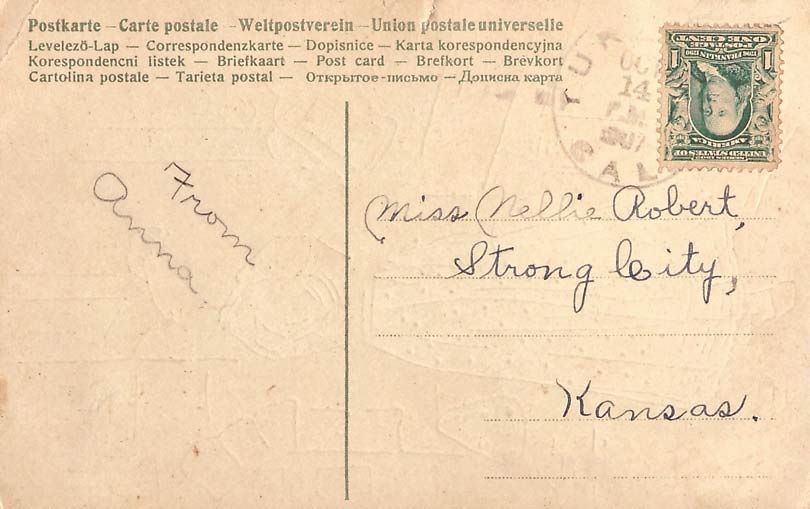 Postkarte — Carte postale — Weltpostverein — Union postale universelle
Levelező-Lap — Correspondenzkarte — Dopisnice — Karta korespondencyjna
Korespondencni listek — Briefkaart — Post card — Brefkort — Brévkort
Cartolina postale — Tarieta postal — Открытое-письмо — Дописна карта
14
1907
CAL
ONE CENT
1 1
UNITED STATES OF
AMERICA
From
Anna.
Miss Nellie Robert,
Strong City,
Kansas.